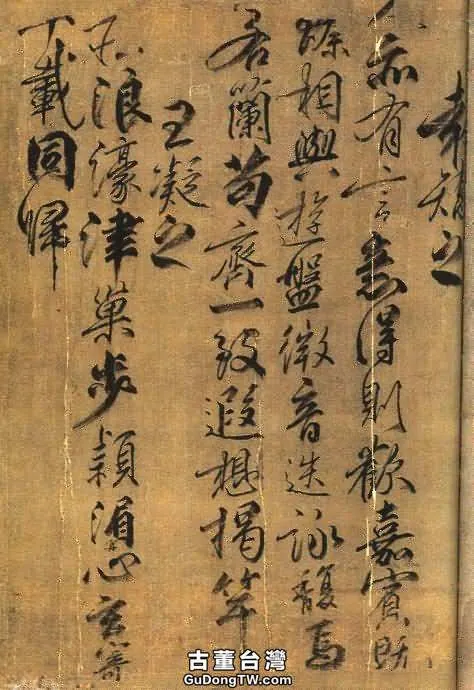 袁之
人亦有言意得則歡嘉賓既
臻相與遊盤微音迭詠馥焉
若蘭苟齊一致遐想揭竿
王凝之
浪濠津巢步潁湄心玄寄
千載同歸
古董台灣
GuDongTW.com